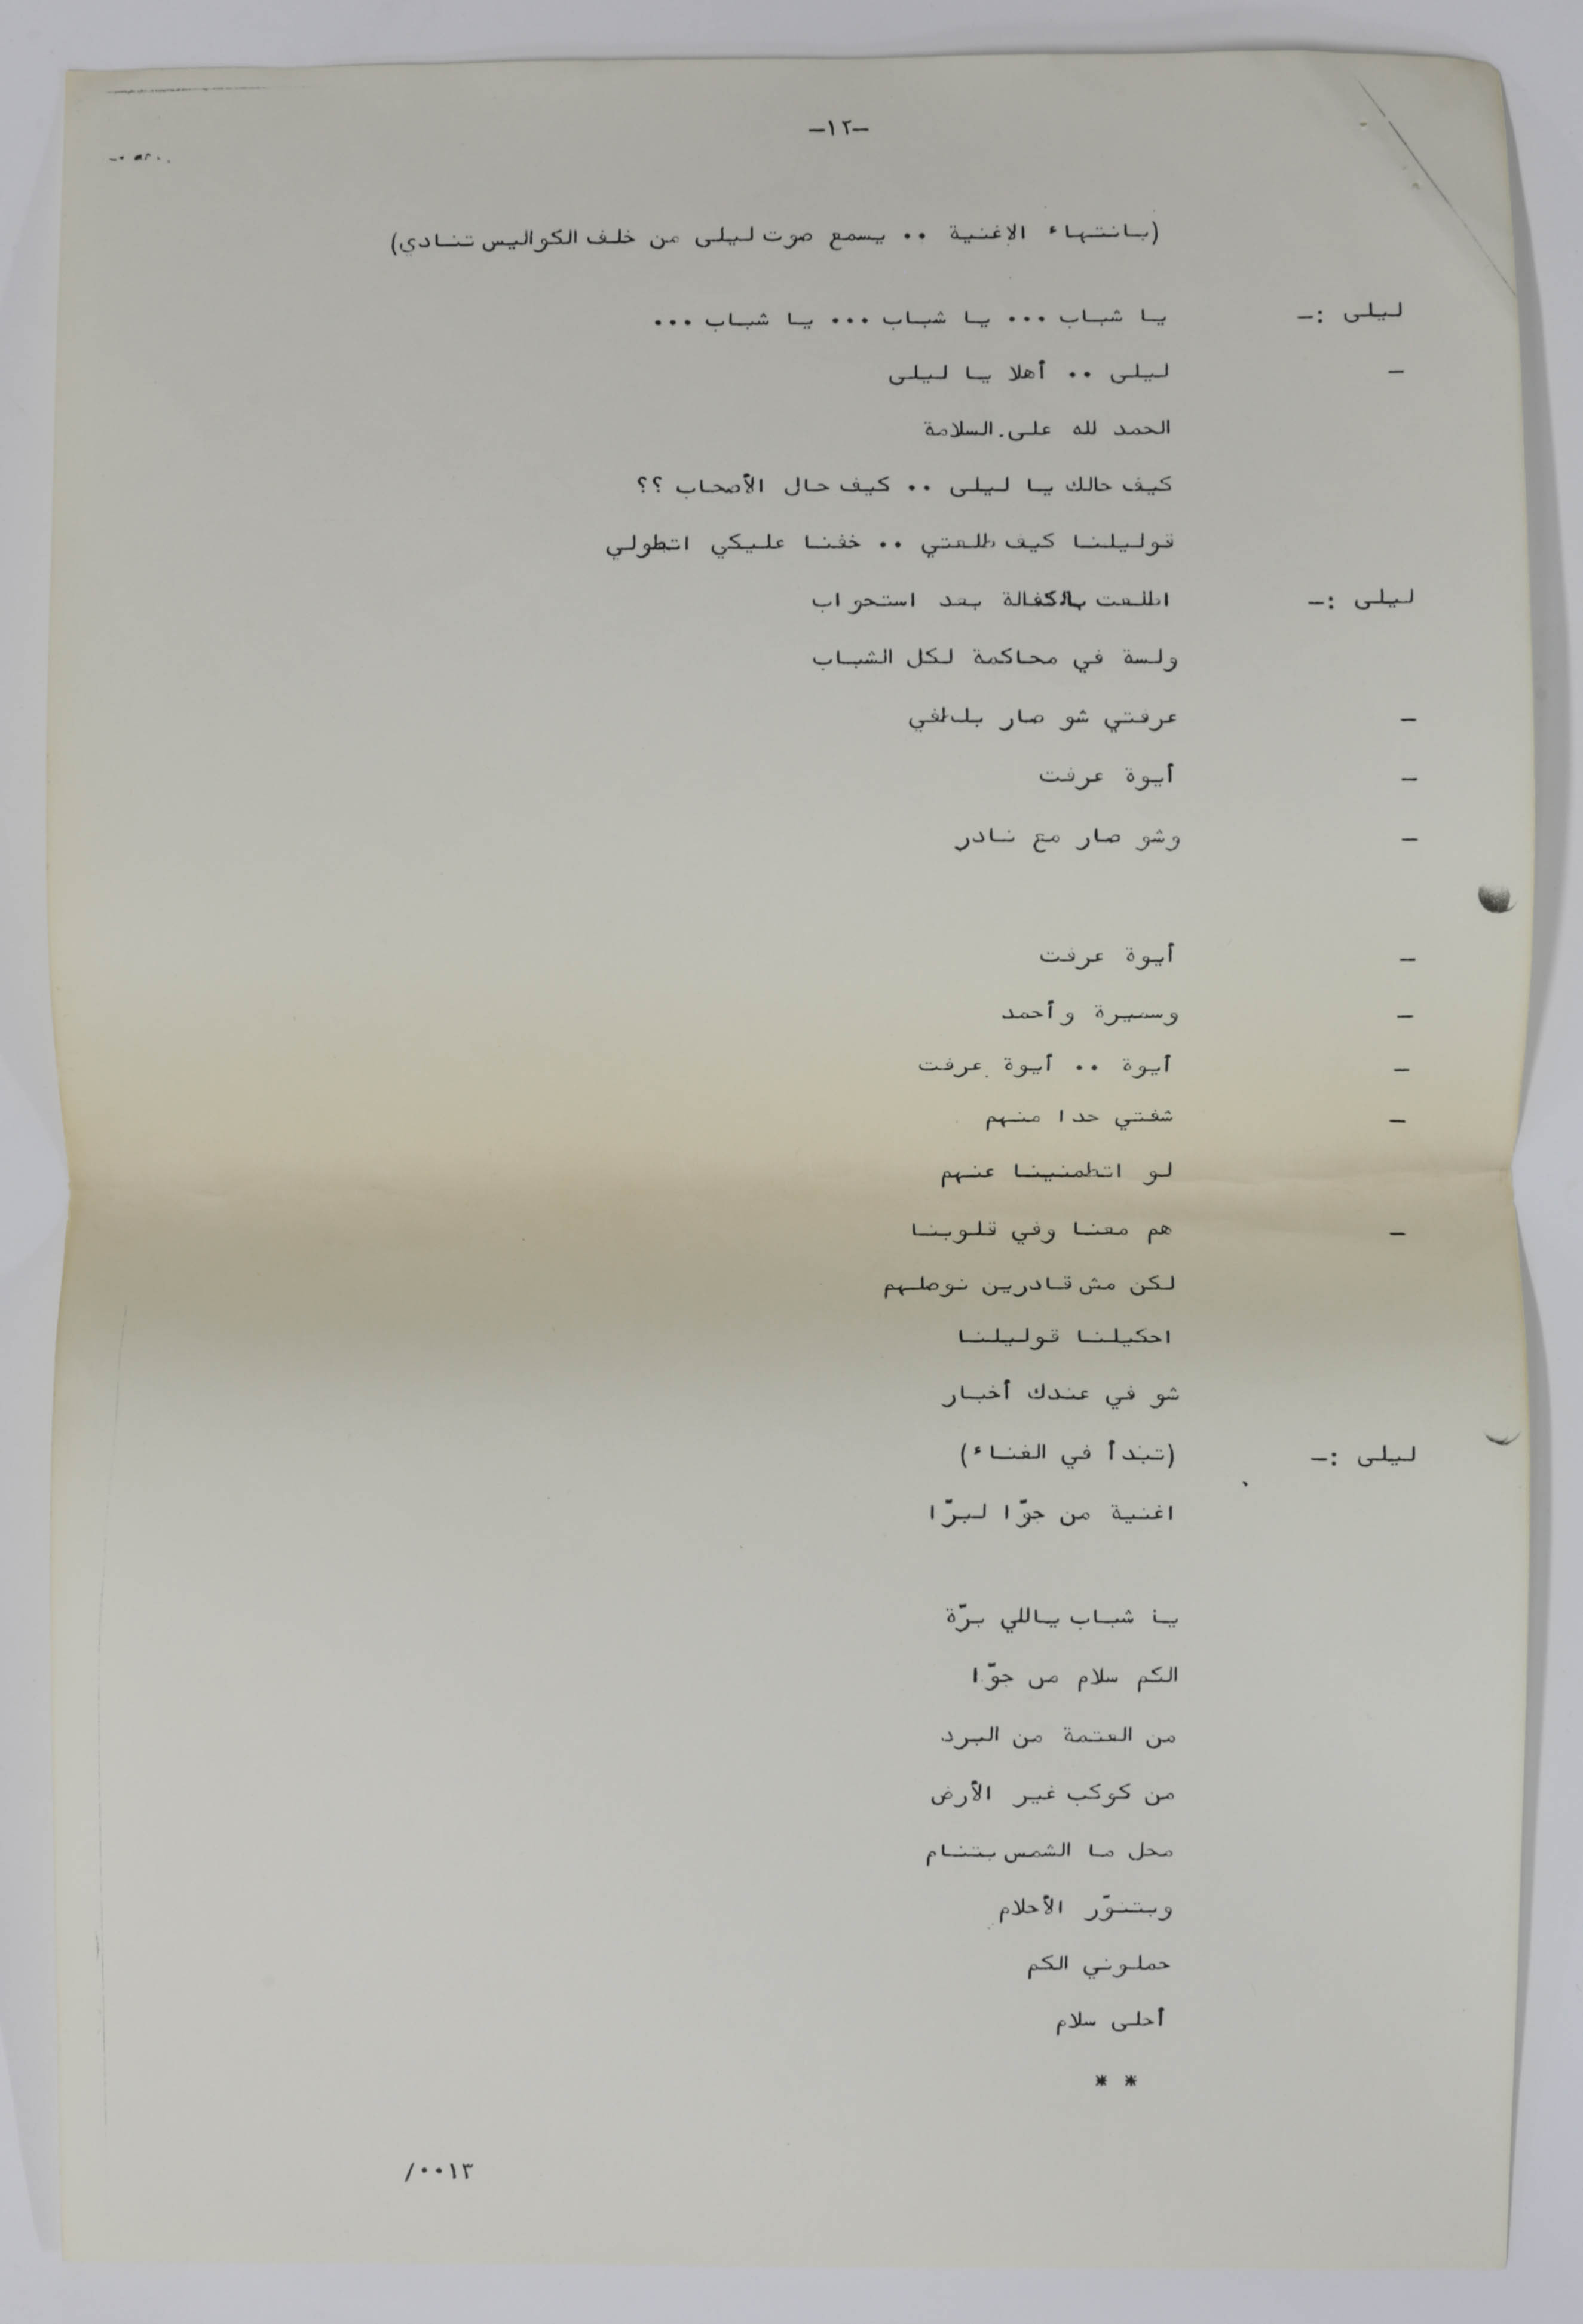 -١٢-
(بانتهاء الاغنية .. يسمع صوت ليلى من خلف الكواليس تنادي)
ليلى :- يا شباب ... يا شباب ... يا شباب ...
- ليلى .. أهلا يا ليلى
الحمد لله على السلامة
كيف حالك يا ليلى .. كيف حال الأصحاب ؟؟
قوليلنا كيف طلعتي .. خفنا عليكي اتطولي
ليلى :- اطلعت بالكفالة بعد استجواب
ولسة في محاكمة لكل الشباب
- عرفتي شو صار بلطفي
- أيوة عرفت
- وشو صار مع نادر
- أيوة عرفت
- وسميرة وأحمد
- أيوة .. أيوة عرفت
- شفتي حدا منهم
لو اتطمنينا عنهم
- هم معنا وفي قلوبنا
لكن مش قادرين نوصلهم
احكيلنا قوليلنا
شو في عندك أخبار
ليلى :- (تبدأ في الغناء)
اغنية من جوّا لبرّا
يا شباب ياللي برّة
الكم سلام من جوّا
من العتمة من البرد
من كوكب غير الأرض
محل ما الشمس بتنام
وبتنوّر الأحلام
حملوني الكم
أحلى سلام
* *
/٠٠١٣